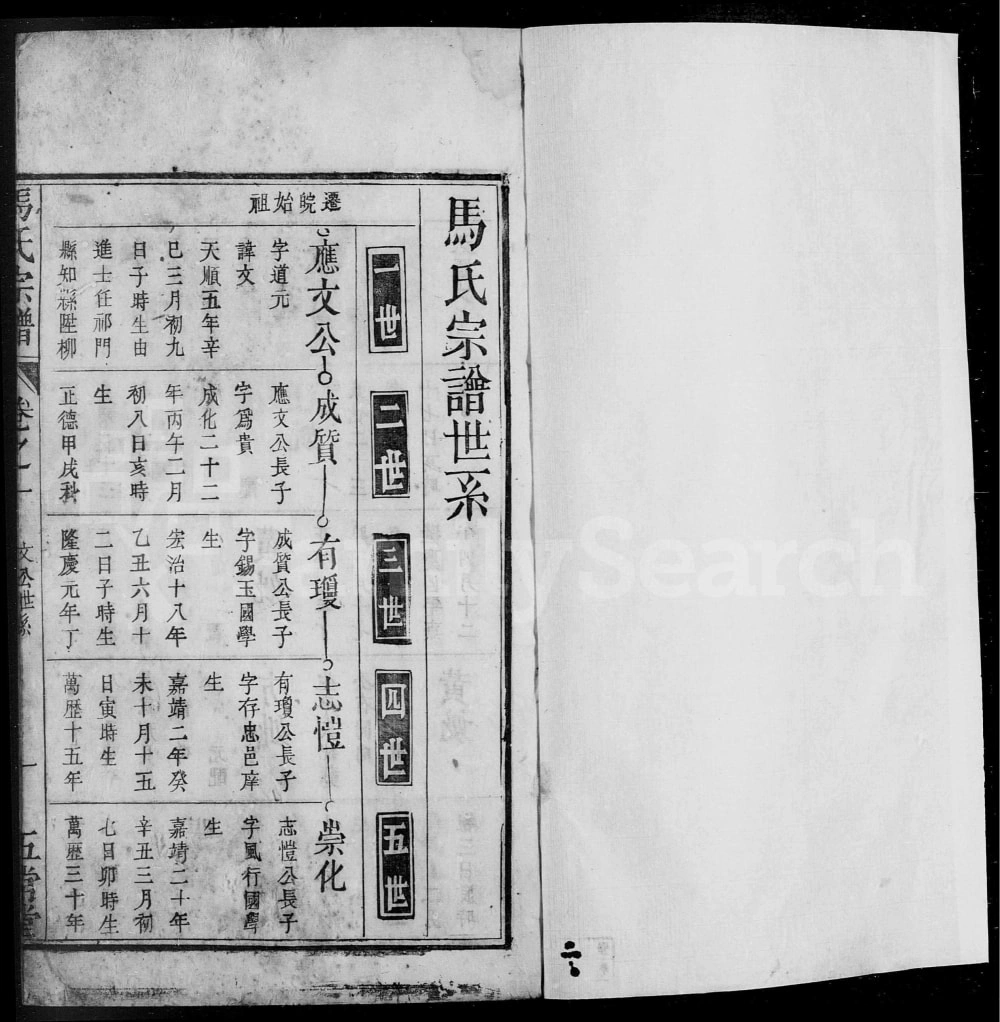 馬氏宗譜世系
一世
二世
三世
四世
五世
遷皖始祖
應文公
成質
有瓊
志愷
崇化
字道元
諱文
天順五年辛
巳三月初九
日子時生由
進士任祁門
縣知縣陞柳
應文公長子
字爲貴
成化二十二
年丙午二月
初八日亥時
生
正德甲戌科
成質公長子
字錫玉國學
生
宏治十八年
乙丑六月十
二日子時生
隆慶元年丁
有瓊公長子
字存忠邑庠
生
嘉靖二年癸
未十月十五
日寅時生
萬歷十五年
志愷公長子
字風行國學
生
嘉靖二十年
辛丑三月初
七日卯時生
萬歷三十年
馬氏宗譜
卷之一
文公世系
一
五常堂
二
FamilySearch